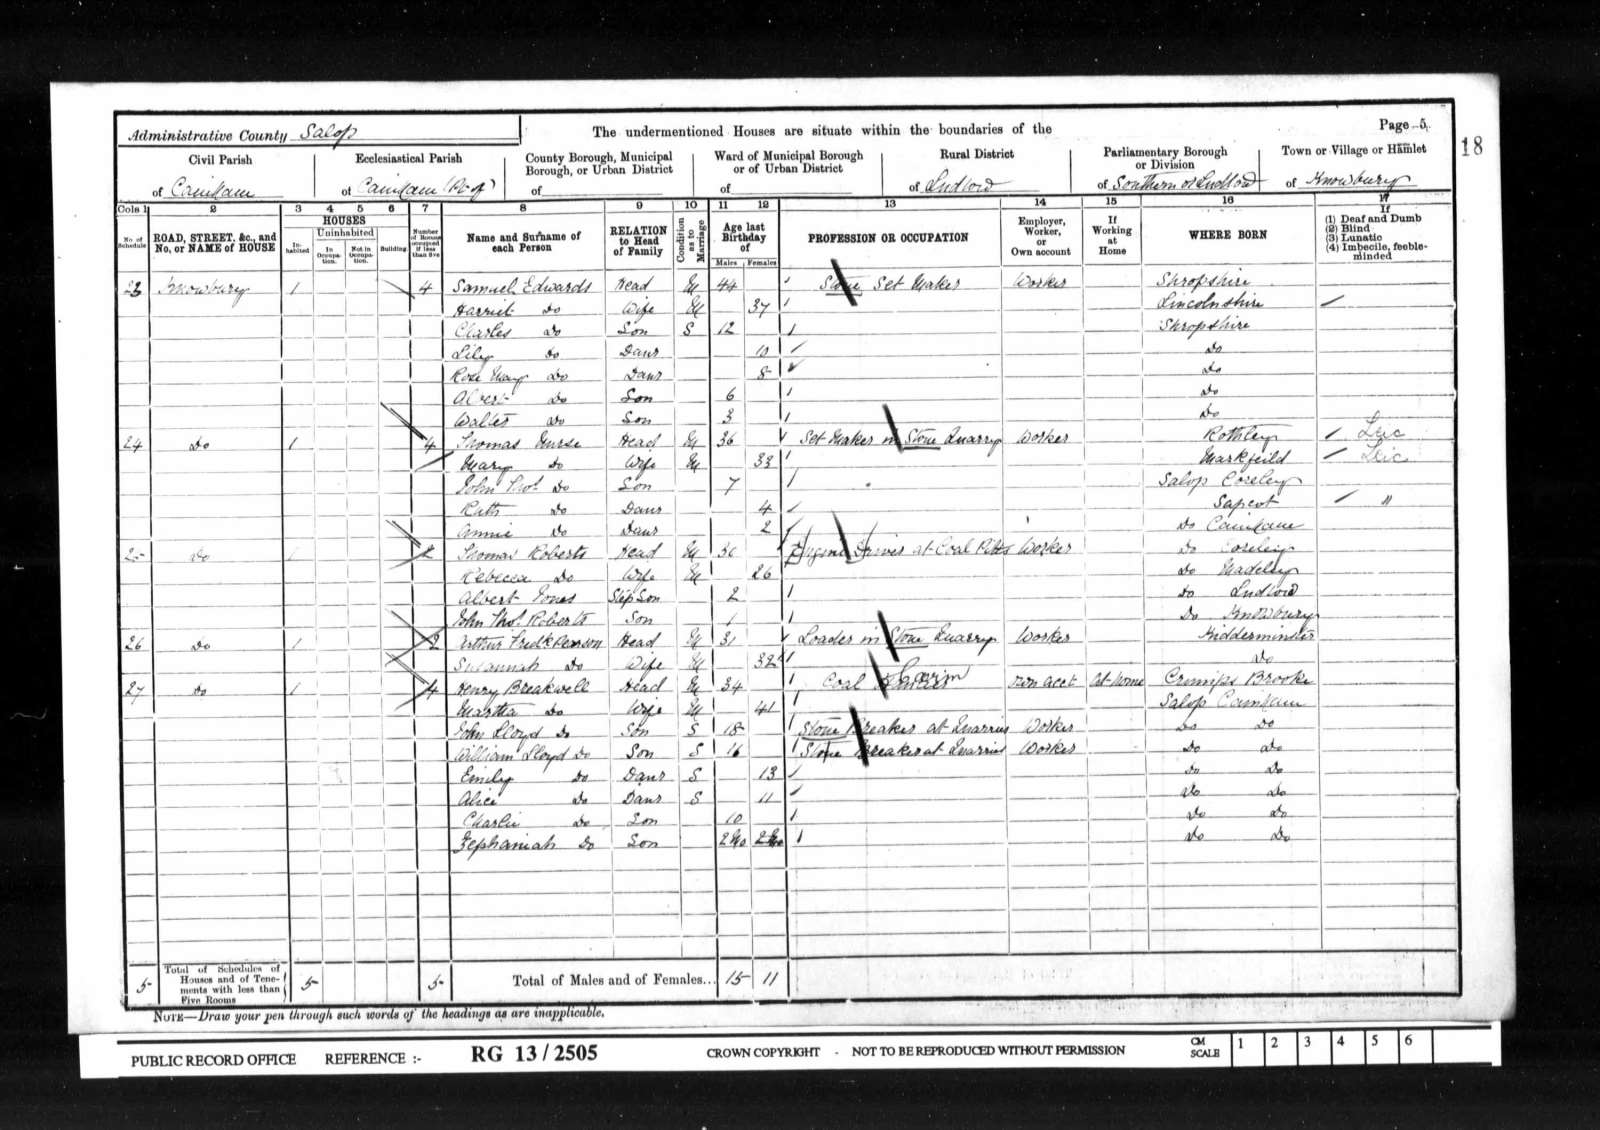 Administrative County Salop
The undermentioned Houses are situate within the boundaries of the
Page 5.
18
Civil Parish
of Cainham
Ecclesiastical Parish
of Cainham (Pt of)
County Borough, Municipal
Borough, or Urban District
of
Ward of Municipal Borough
or of Urban District
of
Rural District
of Ludlow
Parliamentary Borough
or Division
of Southern or Ludlow
Town or Village or Hamlet
of Knowbury
Cols 1 2 3 4 5 6 7 8 9 10 11 12 13 14 15 16 17
No. of Schedule
ROAD, STREET, &c., and
No. or NAME of HOUSE
HOUSES
In-habited
Uninhabited
In Occupa-tion.
Not in Occupa-tion.
Building
Number of Rooms occupied if less than five
Name and Surname of
each Person
RELATION
to Head
of Family
Condition as to Marriage
Age last
Birthday
of
Males Females
PROFESSION OR OCCUPATION
Employer,
Worker,
or
Own account
If
Working
at
Home
WHERE BORN
If
(1) Deaf and Dumb
(2) Blind
(3) Lunatic
(4) Imbecile, feeble-
minded
23 Knowbury 1 4 Samuel Edwards Head M 44 Stone Set Maker Worker Shropshire
Harriet Do Wife M 37 Lincolnshire
Charles Do Son S 12 Shropshire
Lily Do Daur 10 Do
Rose Mary Do Daur 8 Do
Albert Do Son 6 Do
Walter Do Son 3 Do
24 Do 1 4 Thomas Nurse Head M 36 Set Maker in Stone Quarry Worker Rothley Leic
Mary Do Wife M 33 Markfeild Leic
John Thos. Do Son 7 Salop Coreley
Ruth Do Daur 4 Sapcot "
Annie Do Daur 2 Do Cainham
25 Do 1 2 Thomas Roberts Head M 36 Engine Driver at Coal Pitts Worker Do Coreley
Rebecca Do Wife M 26 Do Madeley
Albert Jones Step Son 2 Do Ludlow
John Thos. Roberts Son 1 Do Knowbury
26 Do 1 2 Arthur Fredk Pearson Head M 31 Loader in Stone Quarry Worker Kidderminster
Susannah Do Wife M 32 Do
27 Do 1 4 Henry Breakwell Head M 34 Coal Own acct At home Crumps Brooke
Martha Do Wife M 41 Salop Cainham
John Lloyd Do Son S 18 Stone Breaker at Quarries Worker Do Do
William Lloyd Do Son S 16 Stone Breaker at Quarries Worker Do Do
Emily Do Daur S 13 Do Do
Alice Do Daur S 11 Do Do
Charlie Do Son 10 Do Do
Zephaniah Do Son 2 Mo 2 Mo Do Do
5 Total of Schedules of
Houses and of Tene-
ments with less than
Five Rooms
5 5 Total of Males and of Females... 15 11
NOTE—Draw your pen through such words of the headings as are inapplicable.
PUBLIC RECORD OFFICE REFERENCE :- RG 13/2505 CROWN COPYRIGHT - NOT TO BE REPRODUCED WITHOUT PERMISSION CM SCALE 1 2 3 4 5 6